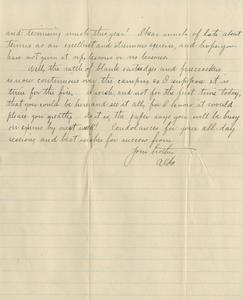 and tennising much this year? I hear much of late about
tennis as an excellent and strenuous exercise, and hope you
have not given it up, lessons or no lessons.
Well, the rattle of blank cartridges and firecrackers
is now continuous over the campus so I suppose it is
time for the fire. I wish, and not for the first time today,
that you could be here and see it all, for I know it would
please you greatly. As it is, the paper says you will be busy
on exams by next week. Condolences for your all-day
sessions and best wishes for success from
Your brother
Aldo